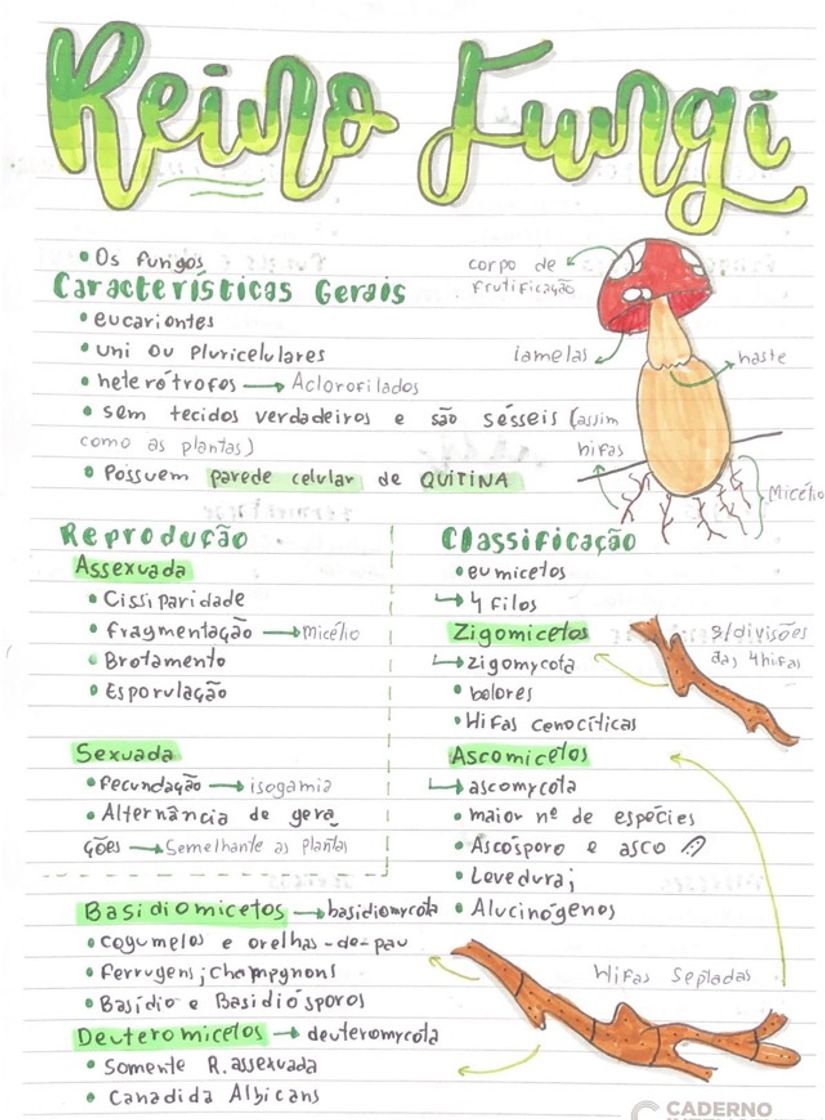 Reino Fungi
• Os fungos
Características Gerais
• eucariontes
• uni ou Pluricelulares
• heterótrofos → Aclorofilados
• sem tecidos verdadeiros e são sésseis (assim
como as plantas)
• Possuem parede celular de QUITINA
corpo de
frutificação
lamelas
haste
hifas
Micélio
Reprodução
Assexuada
• Cissiparidade
• fragmentação → micélio
• Brotamento
• Esporulação
Sexuada
• fecundação → isogamia
• Alternância de gera
ções → Semelhante as plantas
Classificação
• eumicetos
↳ 4 filos
Zigomicetos
↳ zigomycota
• bolores
• Hifas cenocíticas
s/divisões
das 4hifas
Ascomicetos
↳ ascomycota
• maior nº de espécies
• Ascósporo e asco
• Levedura;
• Alucinógenos
Basidiomicetos → basidiomycota
• cogumelos e orelhas-de-pau
• ferrugens; champgnons
• Basídio e Basidiósporos
Hifas Septadas
Deuteromicetos → deuteromycota
• Somente R. assexuada
• Canadida Albicans
CADERNO